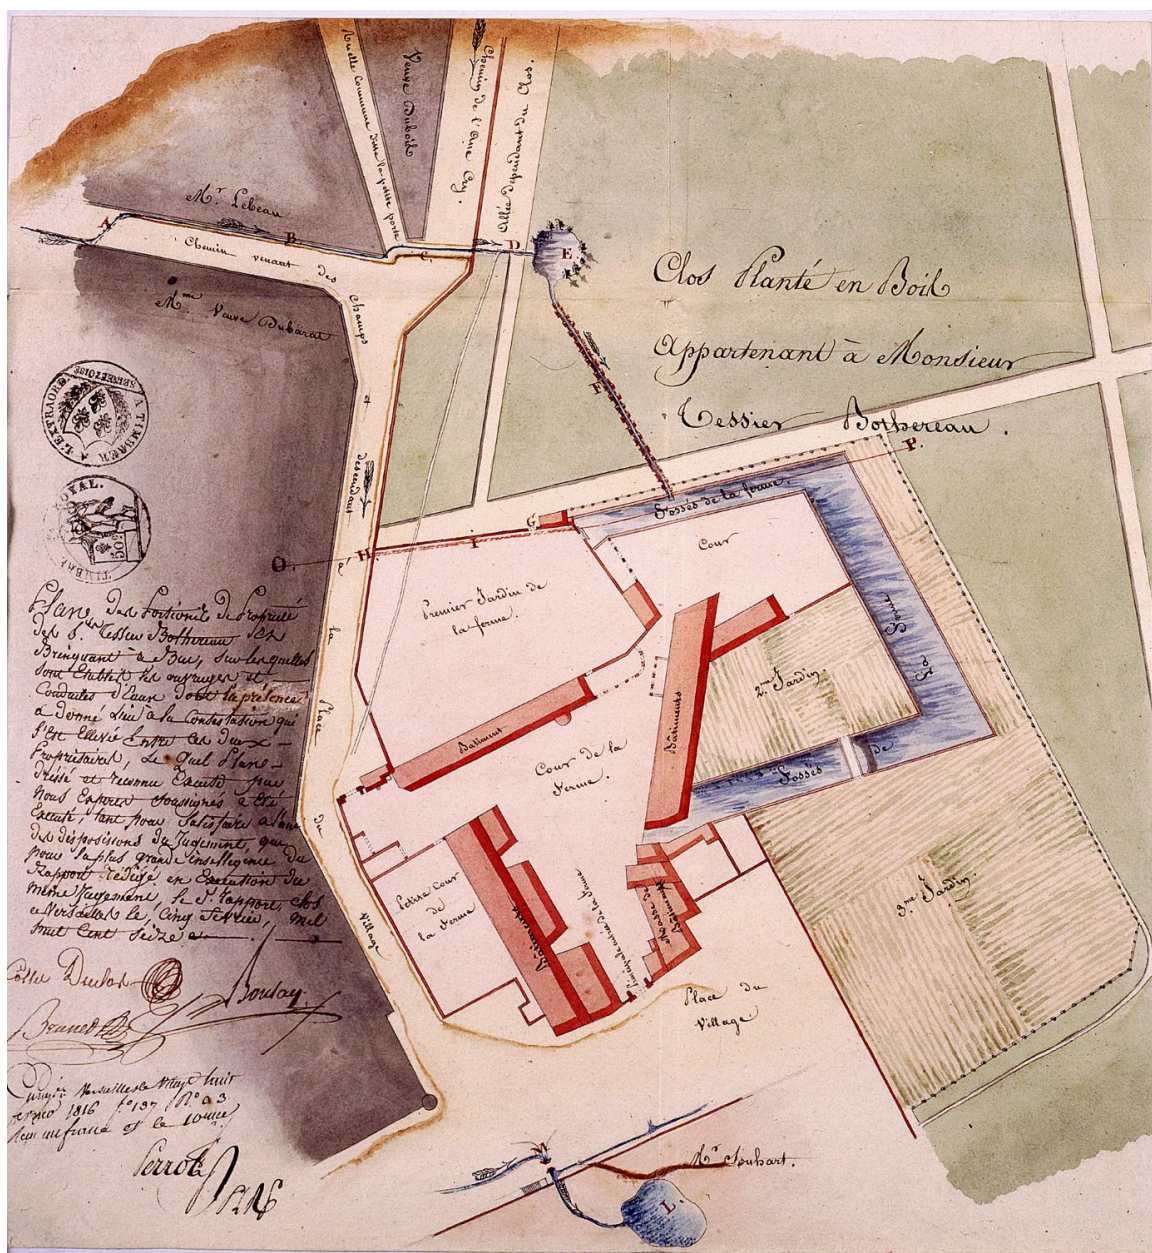 Ruelle Commune dite la petite porte
Veuve Dubois
Chemin de l'Orme
Allée dépendant du Clos.
Mr. Lebeau
A
B
C
D
E
F
Chemin venant des Champs et descendant à la Place du Village
Mme Veuve Dubarat
Clos Planté en Bois
Appartenant à Monsieur
Tessier Bothereau.
A TIMBRER A L'EXTRAORD.
SEINE ET OISE
TIMBRE ROYAL.
50
O
H
I
G
P
Fossés de la ferme.
Cour
Premier Jardin de
la ferme.
2me Jardin
Bâtiment
Bâtiments
Cour de la
Ferme.
Fossés de
Petite Cour
de
la Ferme
Bâtiments
Principale entrée de la ferme
Masse de
Bâtiments
3me Jardin.
Place du
Village.
Plans des Portions de Propriété
des Sr. Tessier Bothereau
à Buc, sur lesquelles
sont Établis les ouvrages et
Conduites d'Eau dont la présence
a donné lieu à la Contestation qui
s'est Élevée Entre les deux
Propriétaires, Lequel Plan
dressé et reconnu Exact par
Nous Experts soussignés a été
Exécuté, tant pour Satisfaire à l'une
des dispositions du Jugement, que
pour la plus grande intelligence du
Rapport rédigé en Exécution du
même Jugement, le dt. rapport clos
à Versailles le, Cinq Février, mil
huit cent seize
Boulay
Versailles le Vingt huit
1816 fo 137
Perrot
M
L